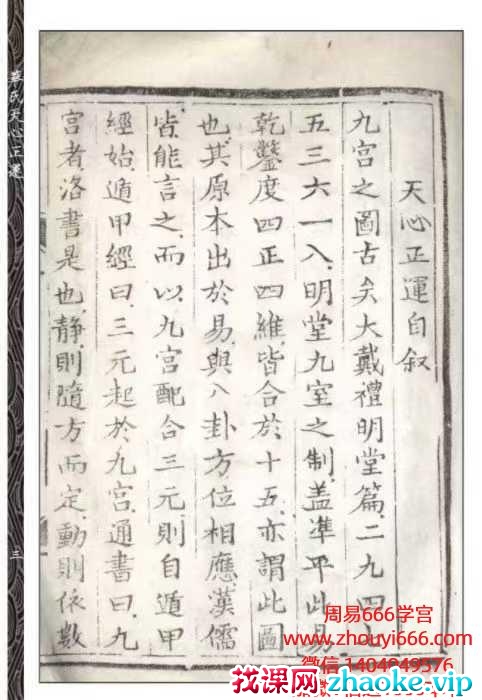 天心正運自叙
九宫之圖古矣大戴禮明堂篇、二九四七
五三六一八、明堂九室之制、蓋準乎此、易
乾鑿度四正四維、皆合於十五、亦謂此圖
也、其原本出於易、與八卦方位相應、漢儒
皆能言之、而以九宫配合三元、則自遁甲
經始、遁甲經曰、三元起於九宫、通書曰、九
宫者、洛書是也、靜則隨方而定、動則依數
蔡氏天心正運
三
周易666学宫
www.zhouyi666.com
微信1404849376
找课网zhaoke.vip